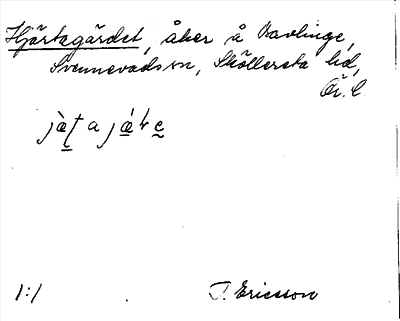 Hjärtagärdet, åker å Vavlinge,
Svennevads sn, Sköllersta hd,
Ör. l.
1:1
J. Ericsson